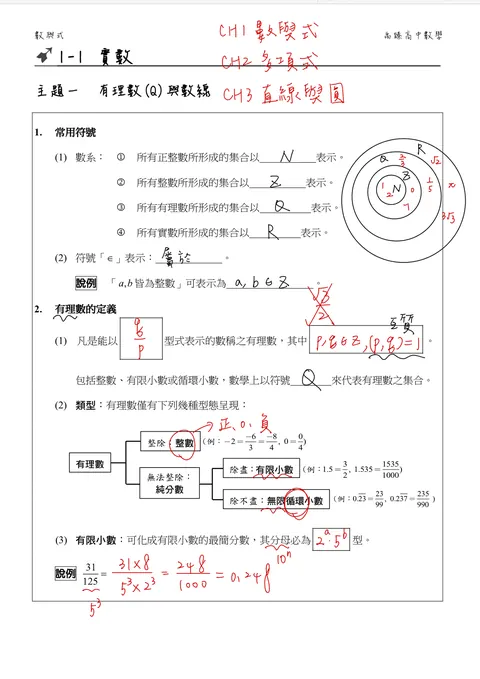 數與式
高中數學
CH1 數與式
1-1 實數
CH2 多項式
主題一 有理數(Q)與數線
CH3 直線與圓
1. 常用符號
(1) 數系: ① 所有正整數所形成的集合以 N 表示。
② 所有整數所形成的集合以 Z 表示。
③ 所有有理數所形成的集合以 Q 表示。
④ 所有實數所形成的集合以 R 表示。
R √2
Q 2/3
Z 1/5 π
1 N 0
2
-7 3√3
(2) 符號「∈」表示: 屬於 。
說例 「a,b 皆為整數」可表示為 a, b ∈ Z 。
√3/2
2. 有理數的定義
互質
(1) 凡是能以 q/p 型式表示的數稱之有理數,其中 p,q ∈ Z,(p,q)=1 。
包括整數、有限小數或循環小數,數學上以符號 Q 來代表有理數之集合。
(2) 類型:有理數僅有下列幾種型態呈現:
→正、0、負
整除:整數 (例:-2 = -6/3 = -8/4, 0 = 0/4)
有理數
除盡:有限小數 (例:1.5 = 3/2, 1.535 = 1535/1000)
無法整除:
純分數
除不盡:無限循環小數 (例:0.2̅3̅ = 23/99, 0.23̅7̅ = 235/990)
(3) 有限小數:可化成有限小數的最簡分數,其分母必為 2^a·5^b 型。
10^n
說例 31/125 = 31×8/5³×2³ = 248/1000 = 0.248
5³